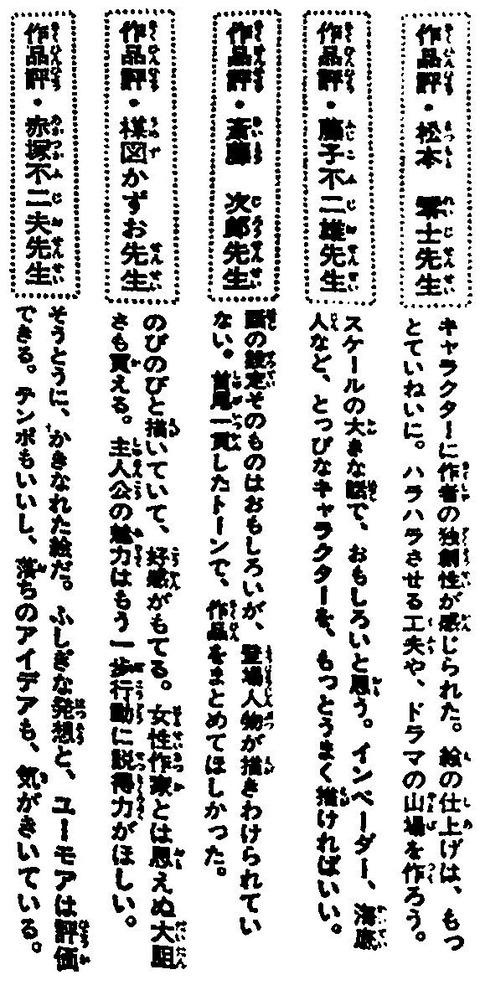 作品評・松本　零士先生
キャラクターに作者の独創性が感じられた。絵の仕上げは、もっ
とていねいに。ハラハラさせる工夫や、ドラマの山場を作ろう。
作品評・藤子不二雄先生
スケールの大きな話で、おもしろいと思う。インベーダー、海底
人など、とっぴなキャラクターを、もっとうまく描ければいい。
作品評・斎藤　次郎先生
話の設定そのものはおもしろいが、登場人物が描きわけられてい
ない。首尾一貫したトーンで、作品をまとめてほしかった。
作品評・楳図かずお先生
のびのびと描いていて、好感がもてる。女性作家とは思えぬ大胆
さも買える。主人公の魅力はもう一歩行動に説得力がほしい。
作品評・赤塚不二夫先生
そうとうに、かきなれた絵だ。ふしぎな発想と、ユーモアは評価
できる。テンポもいいし、落ちのアイデアも、気がきいている。